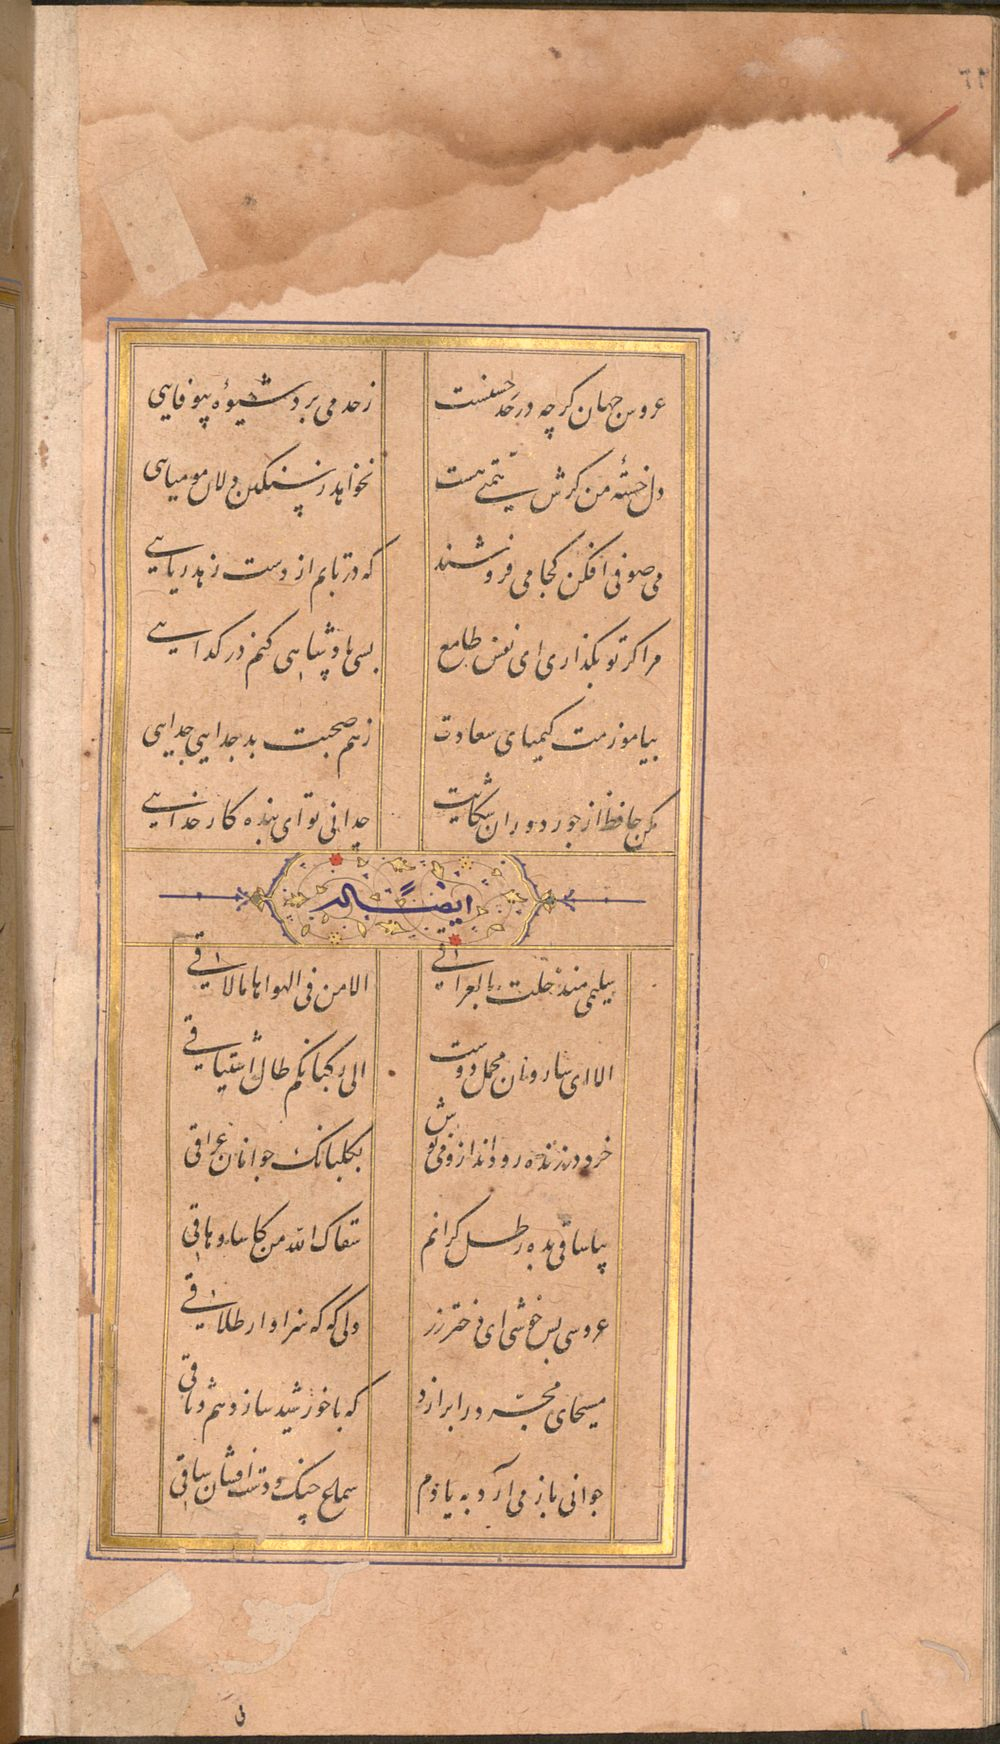 عروس جهان کرچه در حد حسنست    ز حد می برد شیوهٔ بیوفایی
دل خستهٔ من کرش همتی هست    نخواهد ز سنکین دلان مومیایی
می صوفی افکن کجا می فروشند    که در تابم از دست زهد ریایی
مرا کر تو بکذاری ای نفس طامع    بسی پادشاهی کنم در کدایی
بیاموزمت کیمیای سعادت    ز هم صحبت بد جدایی جدایی
مکن حافظ از جور دوران شکایت    چه دانی تو ای بنده کار خدایی
ایضاً له
سلیمی منذ حلت بالعراقی    الاقی من فی الهواها مالاقی
الا ای ساروان محمل دوست    الی رکبانکم طال اشتیاقی
خرد در زنده رود انداز و می نوش    بکلبانک جوانان عراقی
بیا ساقی بده رطل کرانم    سقاک الله من کاسا دهاقی
عروسی بس خوشی ای دختر رز    ولی که که سزاوار طلاقی
مسیحای مجرد را برازد    که با خورشید سازد هم وثاقی
جوانی باز می آرد به یادم    سماع چنک و دست افشان ساقی